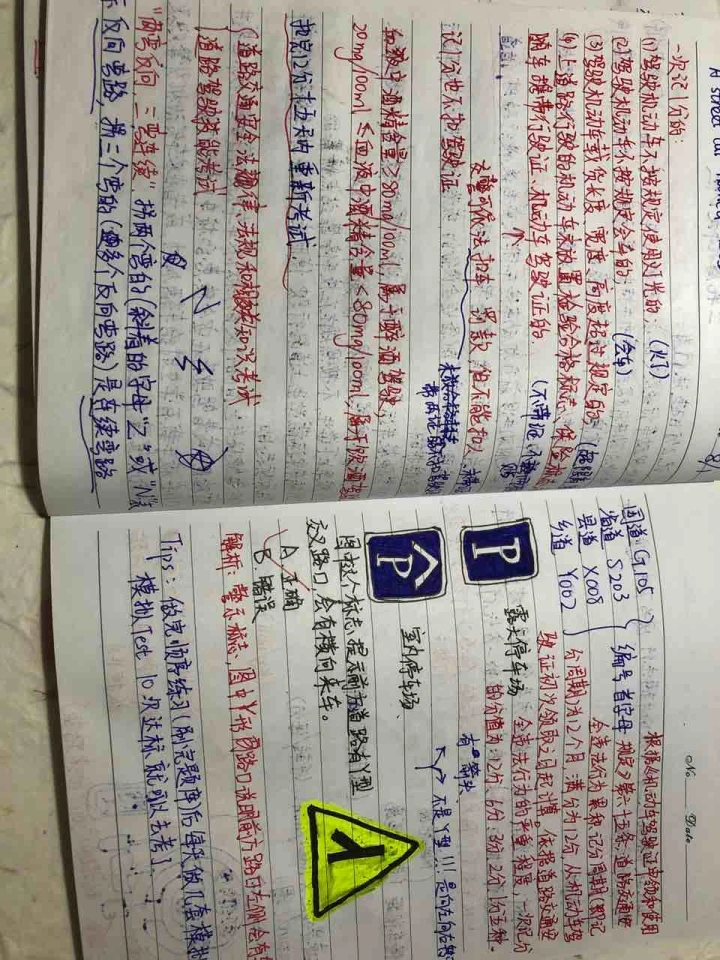 一次记1分的:
(1)驾驶机动车不按规定使用灯光的, (灯)
(2)驾驶机动车不按规定会车的, (会车)
(3)驾驶机动车载货长度、宽度、高度超过规定的
(4)上道路行驶的机动车未放置检验合格标志、保险标
随车携带行驶证、机动车驾驶证的
交警可依法扣车 罚款 但不能扣
记1分也不扣驾驶证
血液中酒精含量≥80mg/100ml,属于醉酒驾驶,
20mg/100ml≤血液中酒精含量<80mg/100ml,属于饮酒驾
扣完12分,十五天内重新考试
道路交通安全法律、法规和相关知识考试
道路驾驶技能考试
N
"两弯反向 三弯连续",拐两个弯的(斜着的字母"Z"或"N"
反向弯路,拐三个弯的(或多个反向弯路)是连续弯路
No.
Date
国道:G105
省道 S203
县道 X008
乡道 Y002
编号首字母
根据《机动车驾驶证申领和使用
规定》第六十五条道路交通安
全违法行为累积记分周期(即记
分周期)为12个月,满分为12分,从机动车驾
驶证初次领取之日起计算。依据道路交通安
全违法行为的严重程度,一次记分
的分值为:12分、6分、3分、2分、1分五种.
P
露天停车场
P
室内停车场、
有箭头
不是Y型!!!
图中这个标志提示前方道路有Y型
交叉路口,会有横向来车。
A 正确
B 错误
解析:警示标志,图中Y形
Tips:做完顺序练习(刷完题库)后每天做几套模拟
模拟Test 10次达标就可以去考了